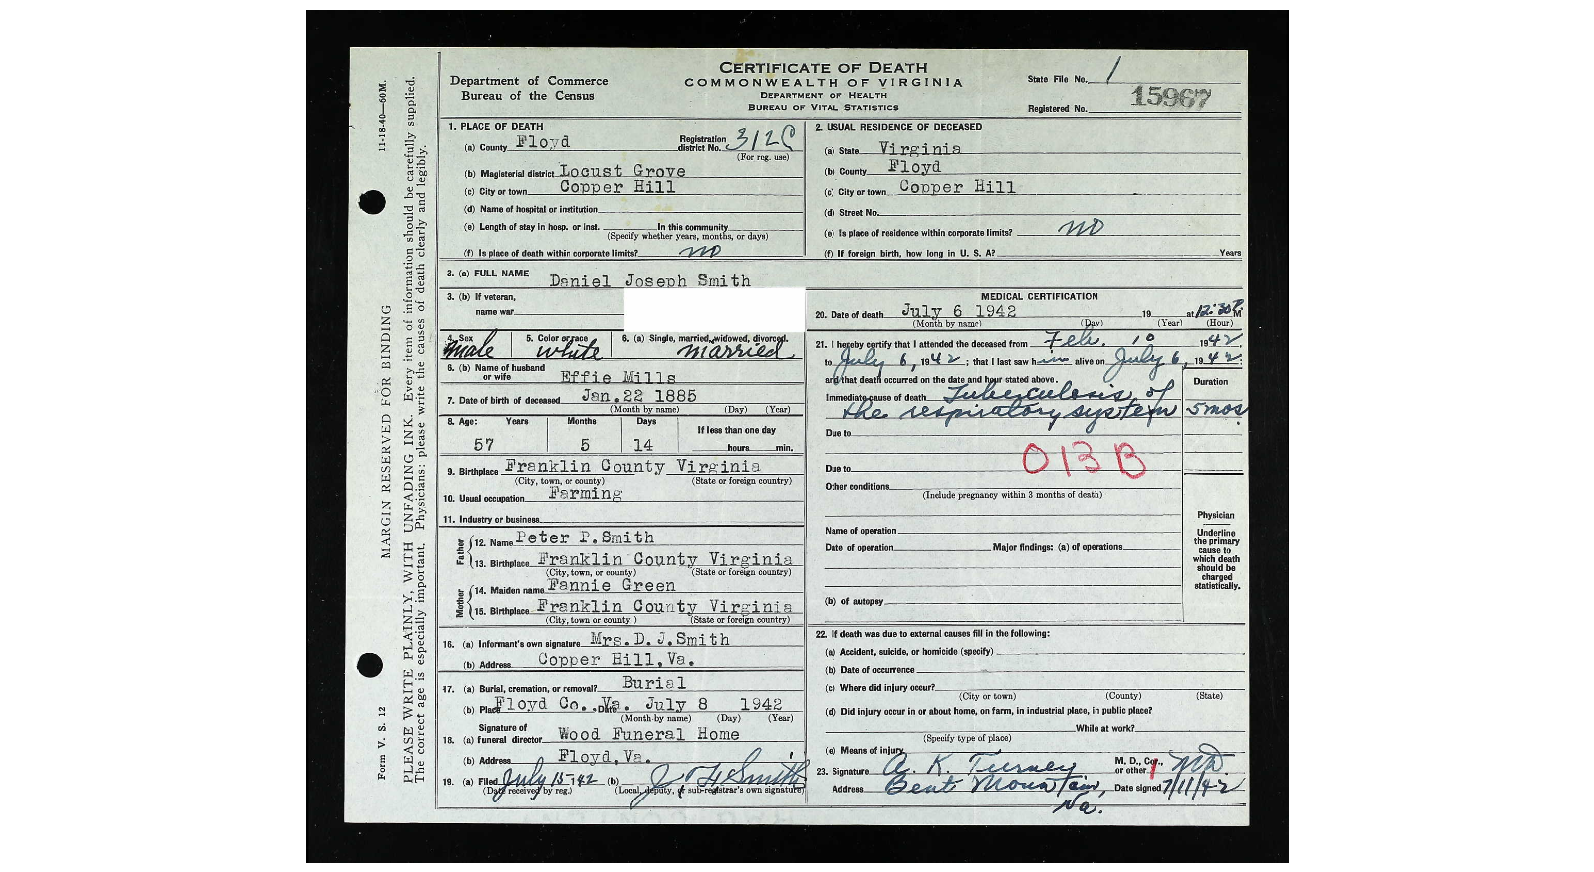 CERTIFICATE OF DEATH
COMMONWEALTH OF VIRGINIA
DEPARTMENT OF HEALTH
BUREAU OF VITAL STATISTICS
Department of Commerce
Bureau of the Census
State File No. 1
Registered No. 15967
11-18-40—50M.
MARGIN RESERVED FOR BINDING
PLEASE WRITE PLAINLY, WITH UNFADING INK. Every item of information should be carefully supplied.
The correct age is especially important. Physicians: please write the causes of death clearly and legibly.
Form V. S. 12
1. PLACE OF DEATH
(a) County Floyd Registration district No. 312C
(For reg. use)
(b) Magisterial district Locust Grove
(c) City or town Copper Hill
(d) Name of hospital or institution
(e) Length of stay in hosp. or inst. In this community
(Specify whether years, months, or days)
(f) Is place of death within corporate limits? no
2. USUAL RESIDENCE OF DECEASED
(a) State Virginia
(b) County Floyd
(c) City or town Copper Hill
(d) Street No.
(e) Is place of residence within corporate limits? no
(f) If foreign birth, how long in U. S. A? Years
3. (a) FULL NAME Daniel Joseph Smith
3. (b) If veteran,
name war
4. Sex male 5. Color or race white 6. (a) Single, married, widowed, divorced. married
6. (b) Name of husband or wife Effie Mills
7. Date of birth of deceased Jan. 22 1885
(Month by name) (Day) (Year)
8. Age: Years Months Days If less than one day
57 5 14 hours min.
9. Birthplace Franklin County Virginia
(City, town, or county) (State or foreign country)
10. Usual occupation Farming
11. Industry or business
Father
12. Name Peter P. Smith
13. Birthplace Franklin County Virginia
(City, town, or county) (State or foreign country)
Mother
14. Maiden name Fannie Green
15. Birthplace Franklin County Virginia
(City, town or county ) (State or foreign country)
16. (a) Informant's own signature Mrs. D. J. Smith
(b) Address Copper Hill, Va.
17. (a) Burial, cremation, or removal? Burial
(b) Place Floyd Co. Va. Date July 8 1942
(Month by name) (Day) (Year)
18. (a) Signature of funeral director Wood Funeral Home
(b) Address Floyd, Va.
19. (a) Filed July 15-42 (b) J F Smith
(Date received by reg.) (Local, deputy, or sub-registrar's own signature)
MEDICAL CERTIFICATION
20. Date of death July 6 1942 19 at 12:30 P. M
(Month by name) (Day) (Year) (Hour)
21. I hereby certify that I attended the deceased from Feb. 10 1942
to July 6, 1942; that I last saw him alive on July 6, 1942;
and that death occurred on the date and hour stated above.
Duration
Immediate cause of death Tuberculosis of
the respiratory system 5 mos.
Due to
Due to 013B
Other conditions
(Include pregnancy within 3 months of death)
Name of operation
Date of operation Major findings: (a) of operations
(b) of autopsy
Physician
Underline
the primary
cause to
which death
should be
charged
statistically.
22. If death was due to external causes fill in the following:
(a) Accident, suicide, or homicide (specify)
(b) Date of occurrence
(c) Where did injury occur?
(City or town) (County) (State)
(d) Did injury occur in or about home, on farm, in industrial place, in public place?
While at work?
(Specify type of place)
(e) Means of injury
23. Signature A. K. Turney M. D., Cor., or other MD
Address Bent Mountain, Va. Date signed 7/11/42